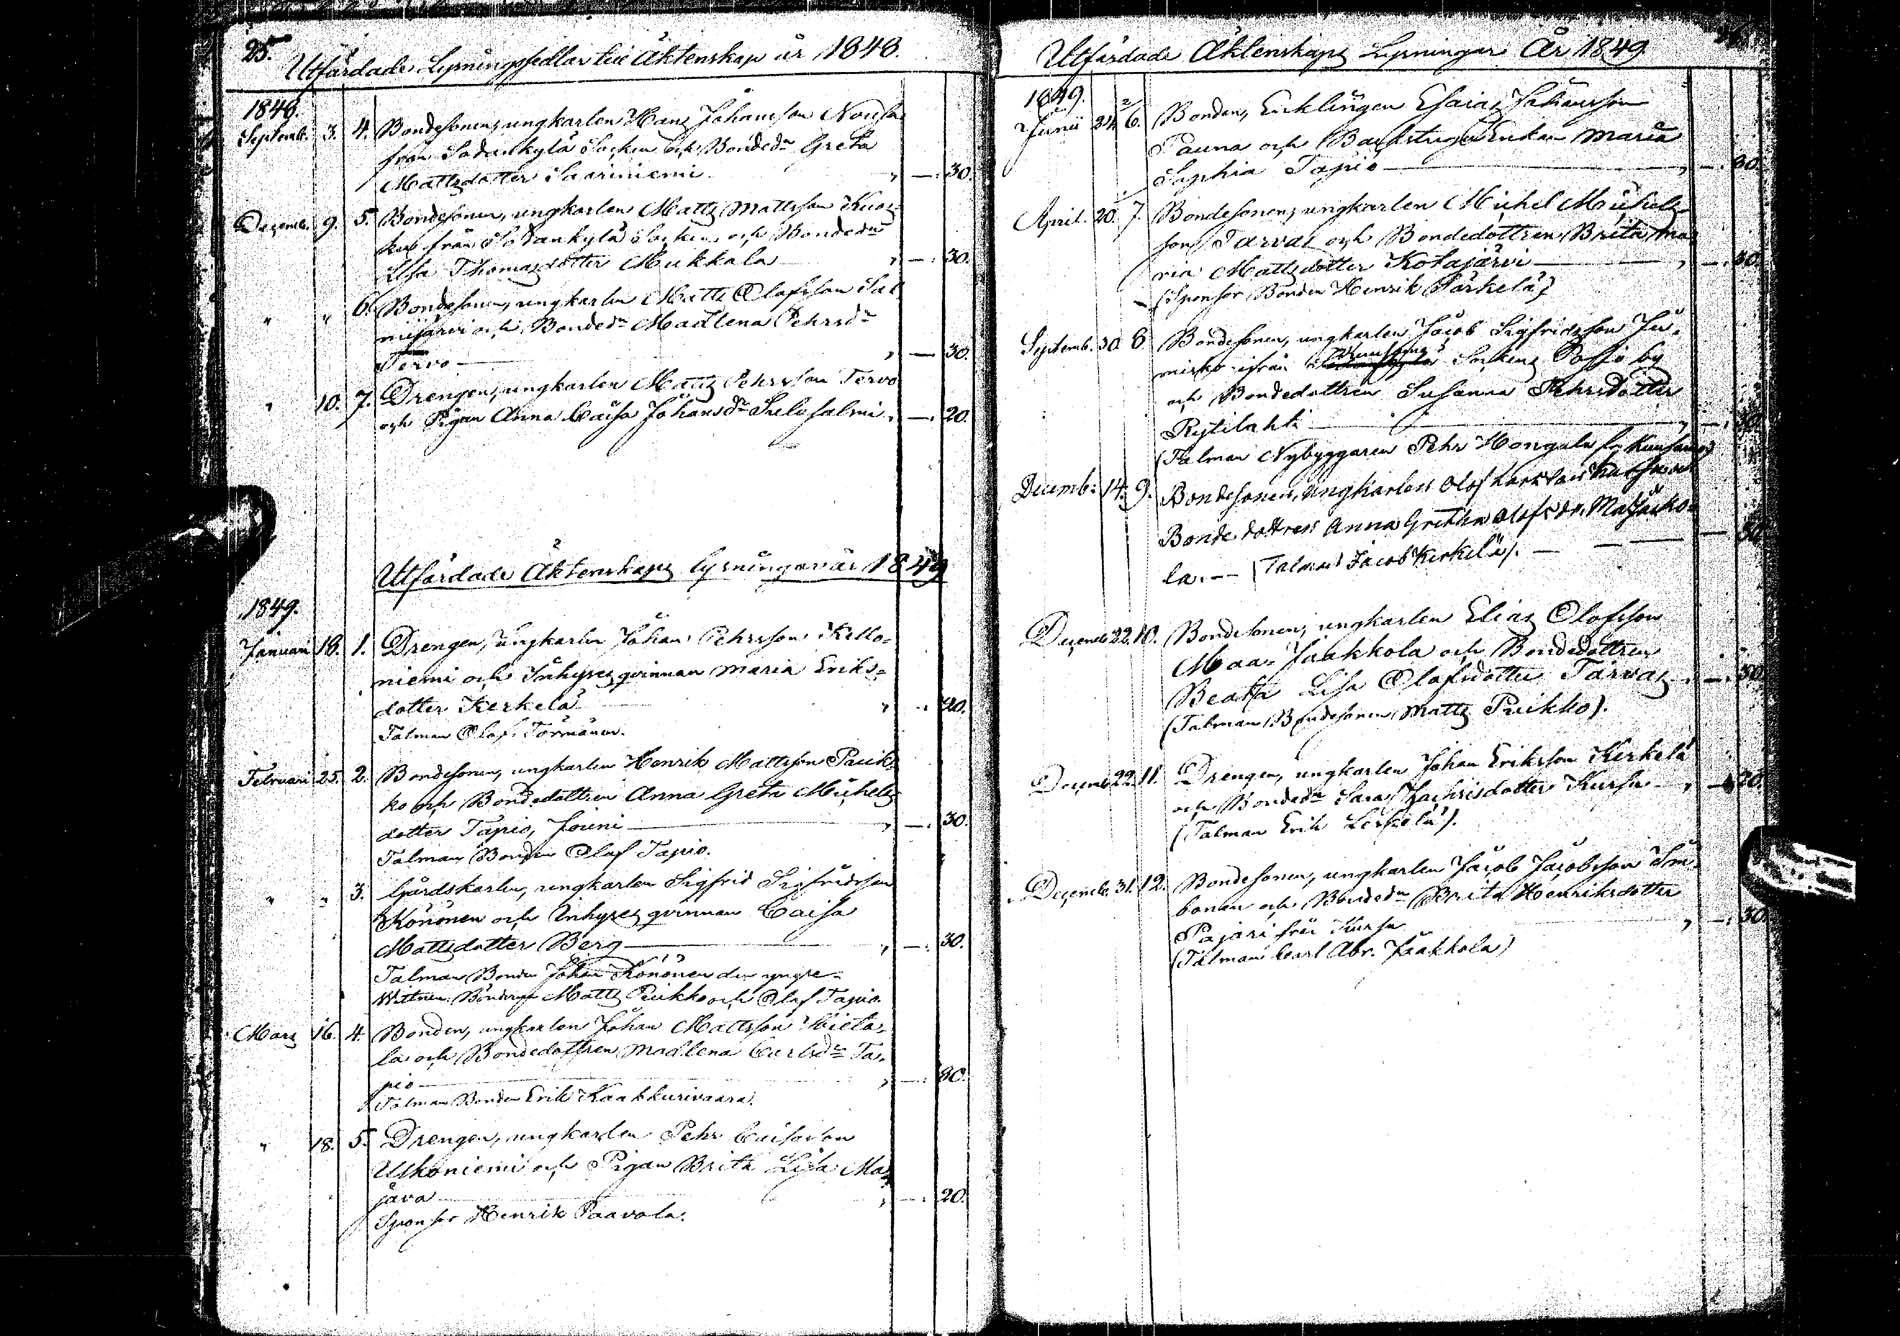 25.
Utfärdade Lysningssedlar till Äktenskap år 1848.
1848.
Septemb. 3. 4. Bondesonen, ungkarlen Hans Johansson Nousu
från Sodankylä Socken och Bonded:r Greta
Mattsdotter Saariniemi „ — . 30.
Decemb. 9. 5. Bondesonen, ungkarlen Matts Mattsson
från Sodankylä Socken och Bonded:r
Lisa Thomasdotter Mukkala „ — . 30.
„ „ 6. Bondesonen, ungkarlen Matts Olofsson Sal
mijärvi och Bonded:r Madlena Pehrsd:r
Tervo „ — 30.
„ 10. 7. Drengen, ungkarlen Matts Pehrsson Tervo
och Pigan Anna Caisa Johansd:r . — . 20.
Utfärdade Äktenskaps lysningar år 1849
1849.
Januari 18. 1. Drengen, ungkarlen Johan Pehrsson Kello-
niemi och Inhyses qvinnan Maria Eriks-
dotter Kerkelä „ . 20.
Talman Olof Törmänen.
Februari 25. 2. Bondesonen, ungkarlen Henrik Mattsson Puik-
ko och Bondedottren Anna Greta Michels
dotter Tapio, Jouni „ — . 30.
Talman Bonden Olof Tapio.
„ „ 3. Gårdskarlen, ungkarlen Sigfrid Sigfridsson
Könönen och Inhyses qvinnan Caisa
Mattsdotter Berg „ — . 30.
Talman Bonden Johan Könönen den yngre -
Wittnen: Bönderne Matts Puikko och Olof Tapio.
Mars 16. 4. Bonden, ungkarlen Johan Mattsson Kieta-
la och Bondedottren Madlena Carlsd:r Ta-
pio „ — . 30.
Talman Bonden Erik Kaakkurivaara.
„ 18. 5. Drengen, ungkarlen Pehr Caisasson
Uskoniemi och Pigan Brita Lisa Ma-
java „ — . 20.
Sponsor Henrik Paavola.
Utfärdade Äktenskaps Lysningar År 1849
1849.
Junii 24 6. Bonden, Enklingen Esaias Johansson
Pauna och Backstugu Enkan Maria
Sophia Tapio „ — . 30.
April. 20. 7. Bondesonen, ungkarlen Michel Michels-
son Tarvas och Bondedottren Brita Ma-
ria Mattsdotter Kotajärvi „ — . 30.
(Sponsor Bonden Henrik Särkelä)
Septemb. 30. 8. Bondesonen, ungkarlen Jacob Sigfridsson
ifrån Kuusamo Sockens Posio by
och Bondedottren Susanna Pehrsdotter
Rytilahti „ — . 30.
(Talman Nybyggaren Pehr Hongala fr. Kuusamo)
Decemb: 14. 9. Bondesonen, ungkarlen Olof
Bondedottren Anna Gretha Olofsdr. Maajäcko-
la. — (Talman Jacob Kerkelä). — — — — 30.
Decemb. 22. 10. Bondesonen, ungkarlen Elias Olofsson
Maa-Jaakkola och Bondedottren
Beata Lisa Olofsdotter Tarvas „ — . 30.
(Talman Bondesonen Matts Puikko).
Decemb. 22. 11. Drengen, ungkarlen Johan Eriksson Kerkelä
och Bonded:r Sara Zachrisdotter Kursu „ — 20.
(Talman Erik Kerkelä).
Decemb. 31. 12. Bondesonen, ungkarlen Jacob Jacobsson Im-
bonen och Bonded:r Brita Henriksdotter
Pajari från Kursu „ — . 30.
(Talman Carl Abr. Jaakkola)